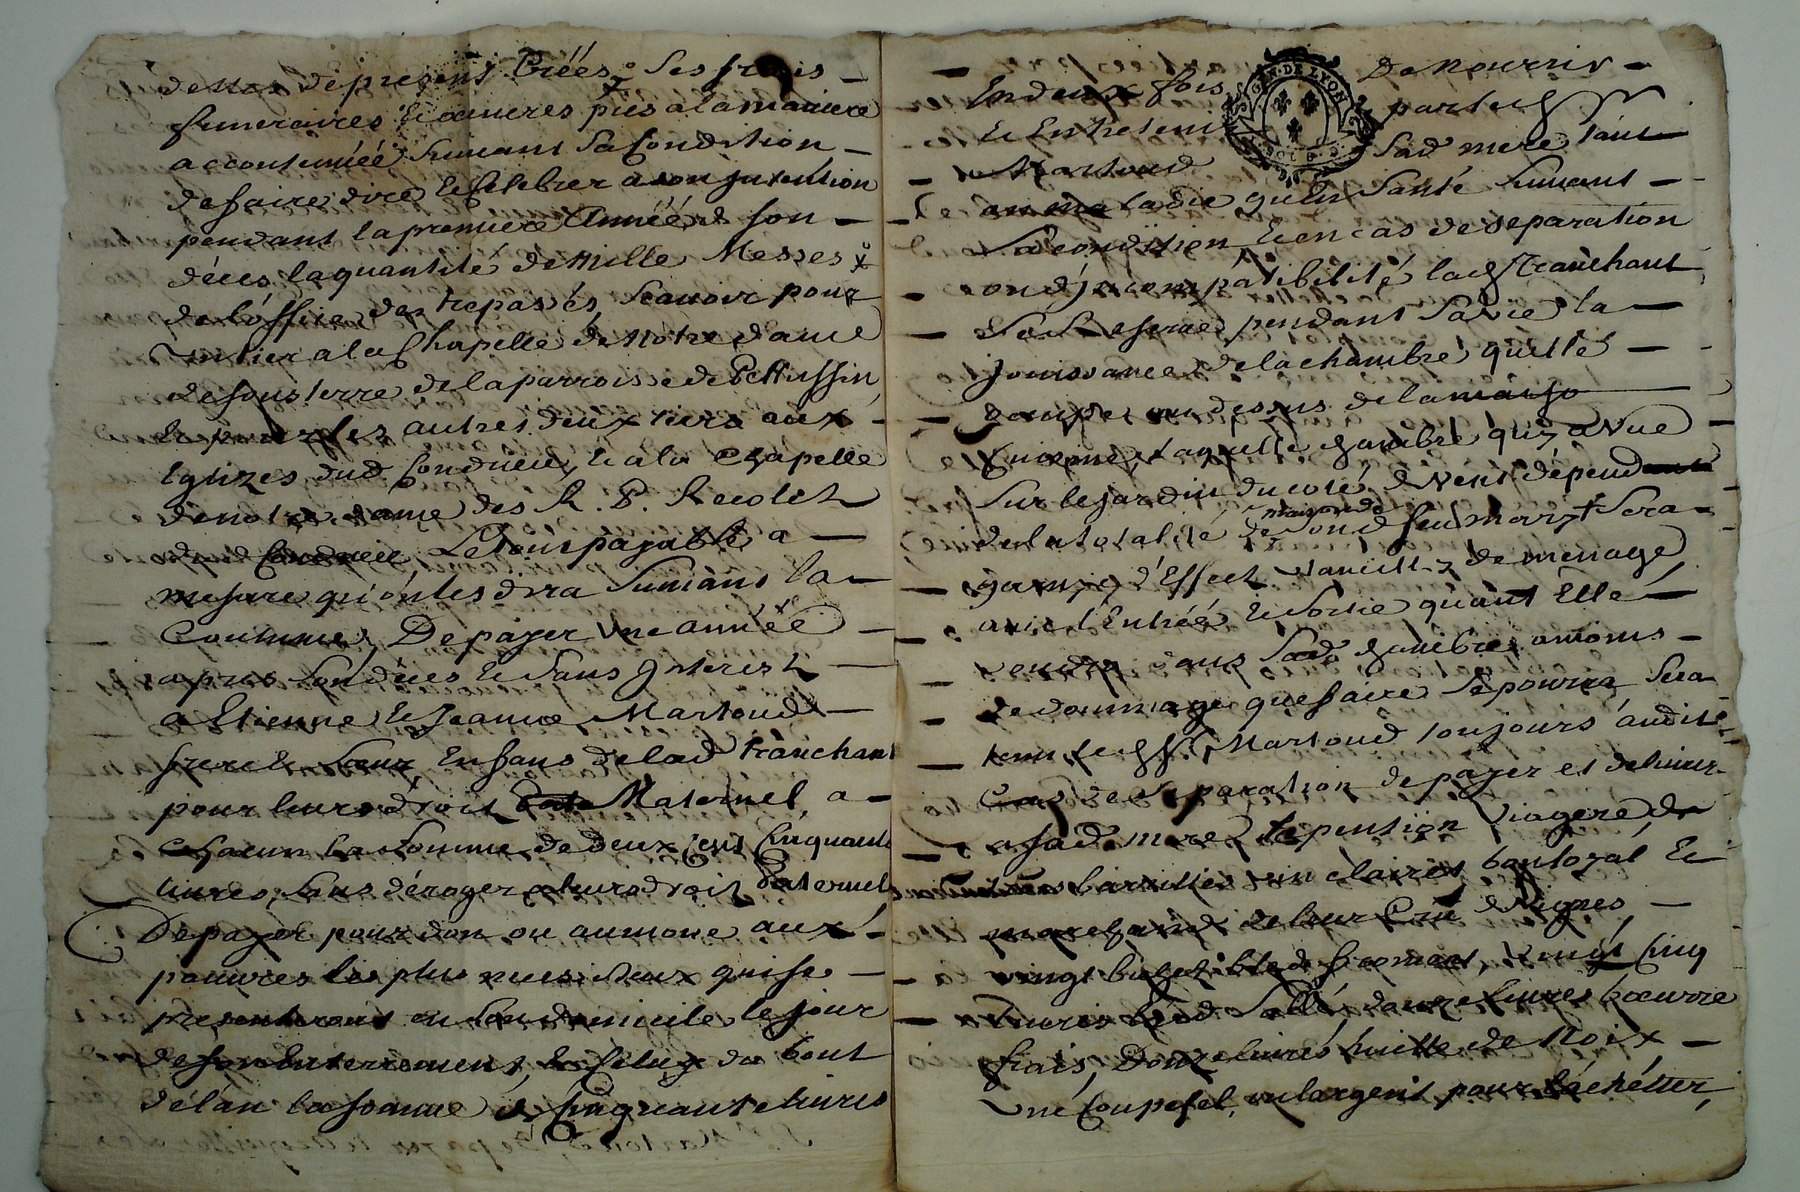 dettes de present Créés, ses frais
funeraires & oeuvres pies a la maniere
accoutuméé suivant sa Condition
de faire dire & Celebrer a son jntention
pendant la premiere Annéé de son
déces la quantité de Mille Messes
de l'office des trepassés, scauoir pour
un tier a la Chapelle de Notre dame
de sousterre de la parroisse de Pellussin
& pour les autres deux tiers aux
Eglizes dud Condrieu, & a la Chapelle
de notre dame des R. P. Recolets
dud Condrieu Le tout payable a
mesure qu'on les dira suivant la
Coutume, De payer une année
apres son déces & sans jnterest
a Etienne & Jeanne Martoud
frere & soeur Enfans de lad Tranchant
pour leurs droits Maternel, a
chacun la somme de deux Cent Cinquante
livres, sans déroger a leurs droits Paternels
De payer pour don ou aumone aux
pauvres les plus necessiteux qui se
presenteront en son domicile le jour
de son Enterrement, & Celuy du bout
de l'an la somme de Cinquante livres
En deux fois De Nourrir
& Entretenir par led Sr
Martoud Sad mere tant
GEN. DE LYON
SOLS
en maladie qu'en Santé suivant
Sa condition & en cas de separation
ou d'jncompatibilité lad Tranchant
se Reserve pendant Sa Vie la
jouissance de la chambre qu'elle
occupe au dessus de la
laquelle chambre qui a Vue
Sur le jardin du coté de Vent dépend
de la totalité de maison de Sond feu mary & sera
garny d'Effets Vancilles de menage
avec l'Entréé & sortie quant Elle
Viendra dans Sad chambre, amoins
de dommage que faire se pourra sera
tenu led Sr Martoud toujours audit
Cas de separation de payer et delivrer
a sad mere la pention Viagere de
barilles vin clairet bon loyal &
marchand de leur Cru de Vignes
vingt bichets bled froment, Vingt Cinq
Livres Lard Sallé, douze livres beurre
frais, Douze livres huille de Noix
Une Coupe sel, ou largent pour l'achétter,